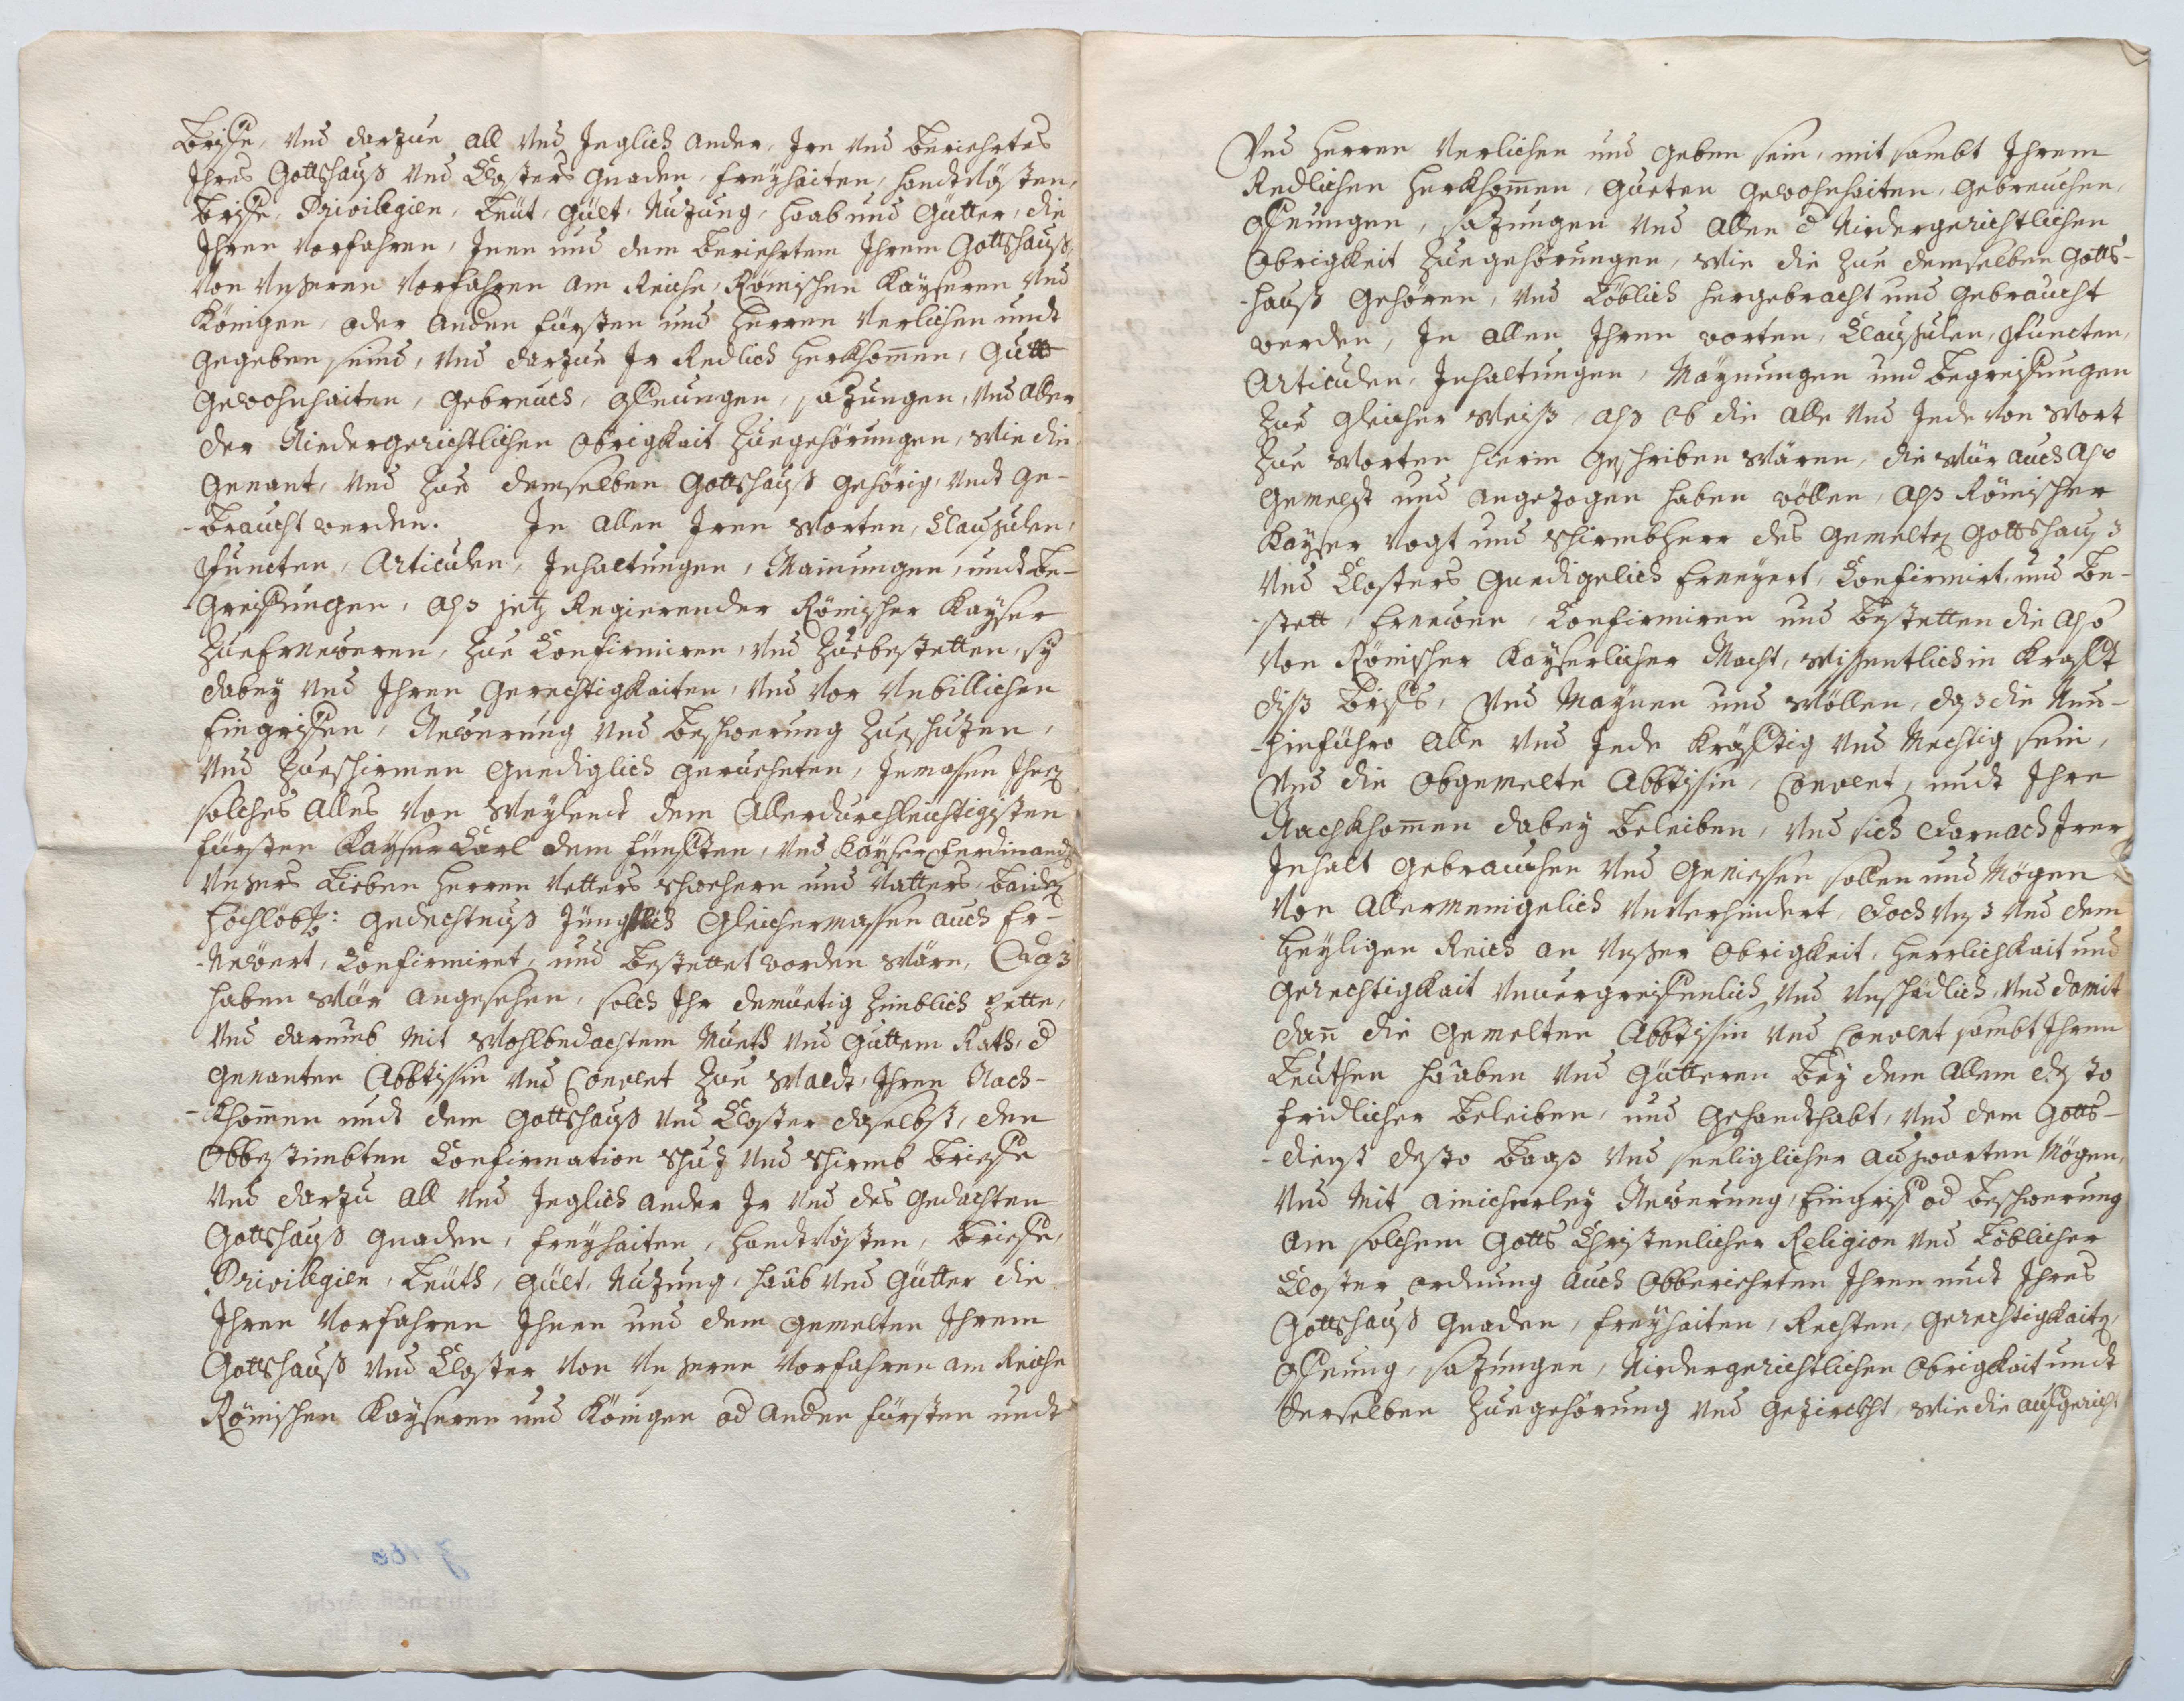 Brieffe, Und darzue all Und Jeglich ander, Jre Und beriehrtes
Jhres Gottshauß Und Closters gnaden, freyhaiten, handtvösten,
brieffe, Privilegien, Leüt, gült, Nuzung, haab und Gütter, die
Jhren Vorfahren, Jnen und dem beriehrtem Jhrem Gottshauß,
Von Unßeren Vorfahren am Reiche, Römischen Kayseren Und
Königen, oder anden fürsten und Herren Verlichen undt
gegeben seind, Und darzue Jr Redlich herkhom̄en, gutt
gewohnhaiten, gebreuch, offnungen, sazungen, Und allen
der Nidergerichtlichen obrigkait Zuegehörungen, wie die
genant, Und Zue demselben Gottshauß gehörig, Undt ge-
-braucht werden. Jn allen Jren Worten, Clausulen,
Puncten, Articulen, Jnhaltungen, Mainungen, undt be-
-greiffungen, alß jetz Regierender Römischer Kayser
Zueerneweren, Zue Confirmiren, Und Zuebestetten, sÿ
dabey Und Jhren gerechtigkaiten, Und Vor Unbillichen
Eingriffen, Newerung Und beschwerung Zueschuzen,
Und Zueschirmen gnediglich gerueheten, Jnmassen Jhnen
solches alles Von Weylendt dem Allerdurchleüchtigisten
fürsten Kayser Carl dem fünfften, Und Kayser Ferdinandt
Unßers Lieben Herren Vetters schwehern und Vatters, baiden
Hochlöbl: gedechtnuß Jüngstlich gleichermassen auch Er-
-Newert, Confirmiret, und bestettet worden wäre, Daß
haben Wür angesehen, solch Jhr demüetig Zimblich bette,
Und darumb Mit Wohlbedachtem Mueth Und guttem Rath, d
genanten Abbtissin Und Convent Zue Waldt, Jhren Nach-
-khom̄en undt dem Gottshauß Und Closter daselbst, den
Obbestimbten Confirmation schuz Und schirmb brieffe
Und darzu all Und Jeglich ander Jr Und des gedachten
Gottshauß gnaden, freyhaiten, handtvösten, brieffe,
Privilegien, Leüth, gült, Nuzung, haab Und Gütter die
Jhren Vorfahren Jhnen und dem gemelten Jhrem
Gottshauß Und Closter Von Unßeren Vorfahren am Reiche
Römischen Kayseren und Königen od anden fürsten undt
Und Herren Verlichen und geben sein, mit sambt Jhrem
Redlichen herkhom̄en, gueten gewohnhaiten, gebreuchen,
offnungen, sazungen Und allen d Nidergerichtlichen
Obrigkeit Zuegehörungen, wie die Zue demselben Gotts-
-hauß gehören, Und Löblich hergebracht und gebraucht
werden, Jn allen Jhren worten, Clausulen, Puncten,
Articulen, Jnhaltungen, Maynungen und begreiffungen
Zue gleicher Weiß, alß ob die alle Und Jede Von Wort
Zue Worten hierin geschriben wären, die Wür auch also
gemeldt und angezogen haben wöllen, alß Römischer
Kayser Vogt und schirmbherr des gemelten Gottshauß
Und Closters gnedigelich Erneyert, Confirmirt, und be-
-stett, Ernewen, Confirmiren und bestetten die also
Von Römischer Kayserlicher Macht, wissentlich in Krafft
diß brieffs, Und Maynen und Wöllen, daß die Nun-
-hinführo alle Und Jede kräfftig Und Mechtig sein,
Und die obgemelte Abbtissin, Convent, undt Jhre
Nachkhom̄en dabey beleiben, Und sich darnach Jrer
Jnhalt gebrauchen Und geniessen sollen und Mögen
Von allermenigelich Unverhindert, doch Unß Und dem
Heyligen Reich an Unßer obrigkeit, herrlichkait und
gerechtigkait Unvergreiffenlich, Und Unschädlich, Und damit
dan̄ die gemelten Abbtissin Und Convent sambt Jhren
Leüthen haaben Und Gütteren bey dem allem desto
fridlicher beleiben, und gehandthabt, Und dem Gotts-
-dienst desto baaß Und seeliglicher außwarten Mögen,
Und Mit ainicherley Newerung, Eingriff od beschwerung
am solchem Gotts Christenlicher Religion Und Löblicher
Closter ordnung auch Obberiehrten Jhren undt Jhres
Gottshauß gnaden, freyhaiten, Rechten, gerechtigkaiten,
offnung, sazungen, Nidergerichtlichen Obrigkait undt
derselben Zuegehörung Und gezirckht, wie die auffgericht